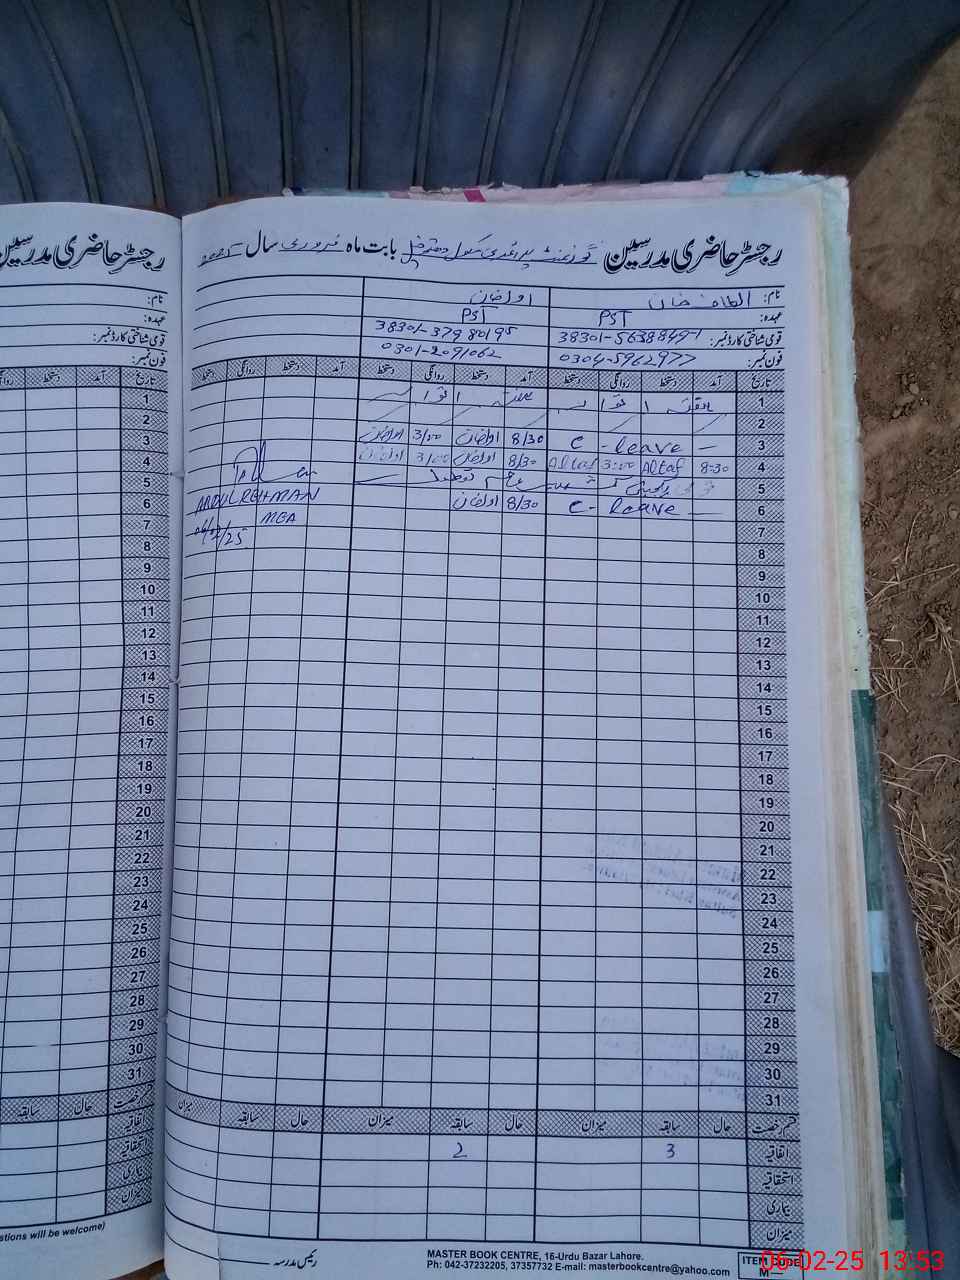 رجسٹر حاضری مدرسین گورنمنٹ پرائمری سکول بابت ماہ فروری سال 2025
رجسٹر حاضری مدرسین
نام: الطاف خان
عہدہ: PST PST
قومی شناختی کارڈ نمبر: 38301-5638849-1 38301-37980195
فون نمبر: 0304-5962977 0301-2091062
نام:
عہدہ:
قومی شناختی کارڈ نمبر:
فون نمبر:
تاریخ آمد دستخط روانگی دستخط آمد دستخط روانگی دستخط آمد دستخط روانگی دستخط
تاریخ آمد دستخط روانگی
1
2
3 — C - leave 8/30 3/00
4 8=30 Altaf 3=00 Altaf 8/30 3/00
5
6 — C - leave 8/30
ABDUL REHMAN
MEA
06/02/25
7
8
9
10
11
12
13
14
15
16
17
18
19
20
21
22
23
24
25
26
27
28
29
30
31
1
2
3
4
5
6
7
8
9
10
11
12
13
14
15
16
17
18
19
20
21
22
23
24
25
26
27
28
29
30
31
قسم رخصت حال سابقہ میزان حال سابقہ میزان حال سابقہ میزان
اتفاقیہ 3 2
استحقاقیہ
بیماری
میزان
قسم رخصت حال سابقہ
اتفاقیہ
استحقاقیہ
بیماری
میزان
رئیس مدرسہ
MASTER BOOK CENTRE, 16-Urdu Bazar Lahore.
Ph: 042-37232205, 37357732 E-mail: masterbookcentre@yahoo.com
ITEM CODE
M—
stions will be welcome)
06-02-25 13:53